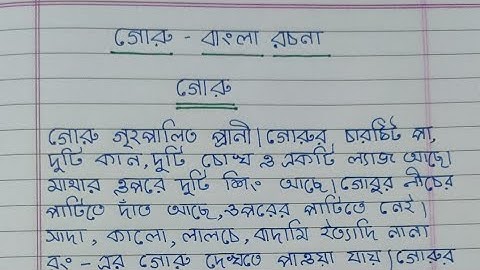 গোরু - বাংলা রচনা
গোরু
গোরু গৃহপালিত প্রানী। গোরুর চারটি পা,
দুটি কান, দুটি চোখ ও একটি ল্যাজ আছে।
মাথার ওপরে দুটি শিং আছে। গোরুর নীচের
পাটিতে দাঁত আছে, ওপরের পাটিতে নেই।
সাদা, কালো, লালচে, বাদামি ইত্যাদি নানা
রং - এর গোরু দেখতে পাওয়া যায়। গোরুর